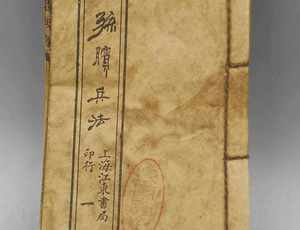 孫臏兵法
上海江東書局
印行
一